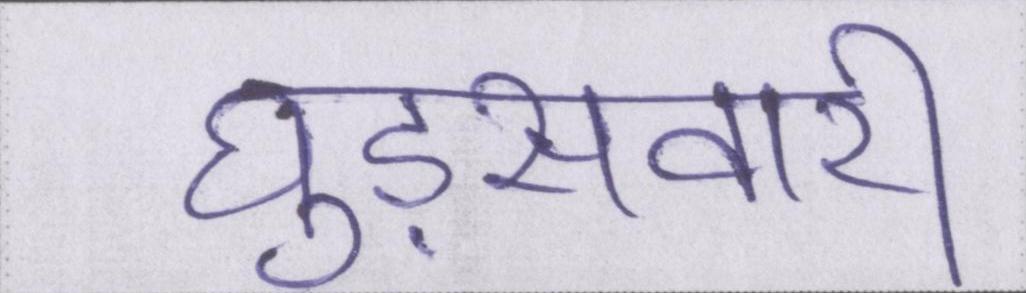 घुड़सवारी